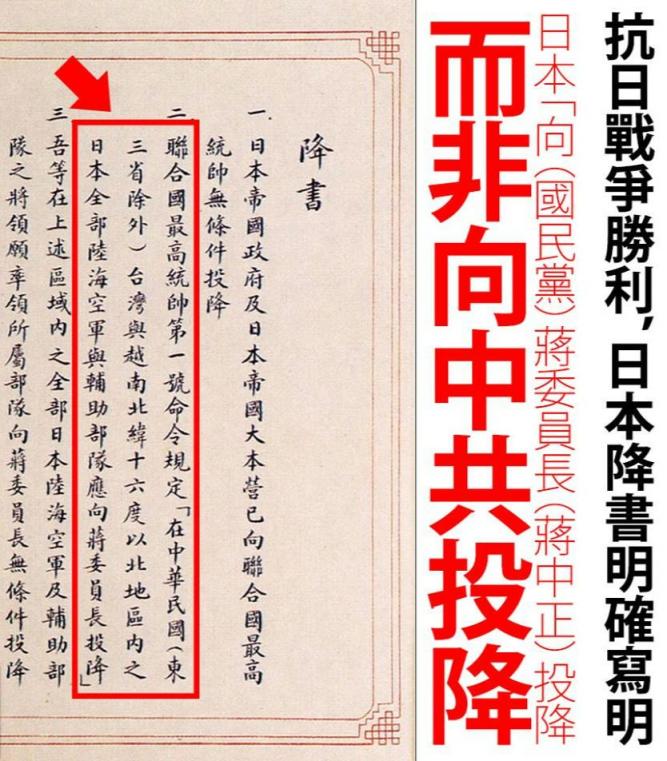 抗日戰爭勝利,日本降書明確寫明
日本「向(國民黨)蔣委員長(蔣中正)投降
而非向中共投降
降書
一 日本帝國政府及日本帝國大本營已向聯合國最高
統帥無條件投降
二 聯合國最高統帥第一號命令規定「在中華民國(東
三省除外)台灣與越南北緯十六度以北地區內之
日本全部陸海空軍與輔助部隊應向蔣委員長投降」
三 吾等在上述區域內之全部日本陸海空軍及輔助部
隊之將領願率領所屬部隊向蔣委員長無條件投降